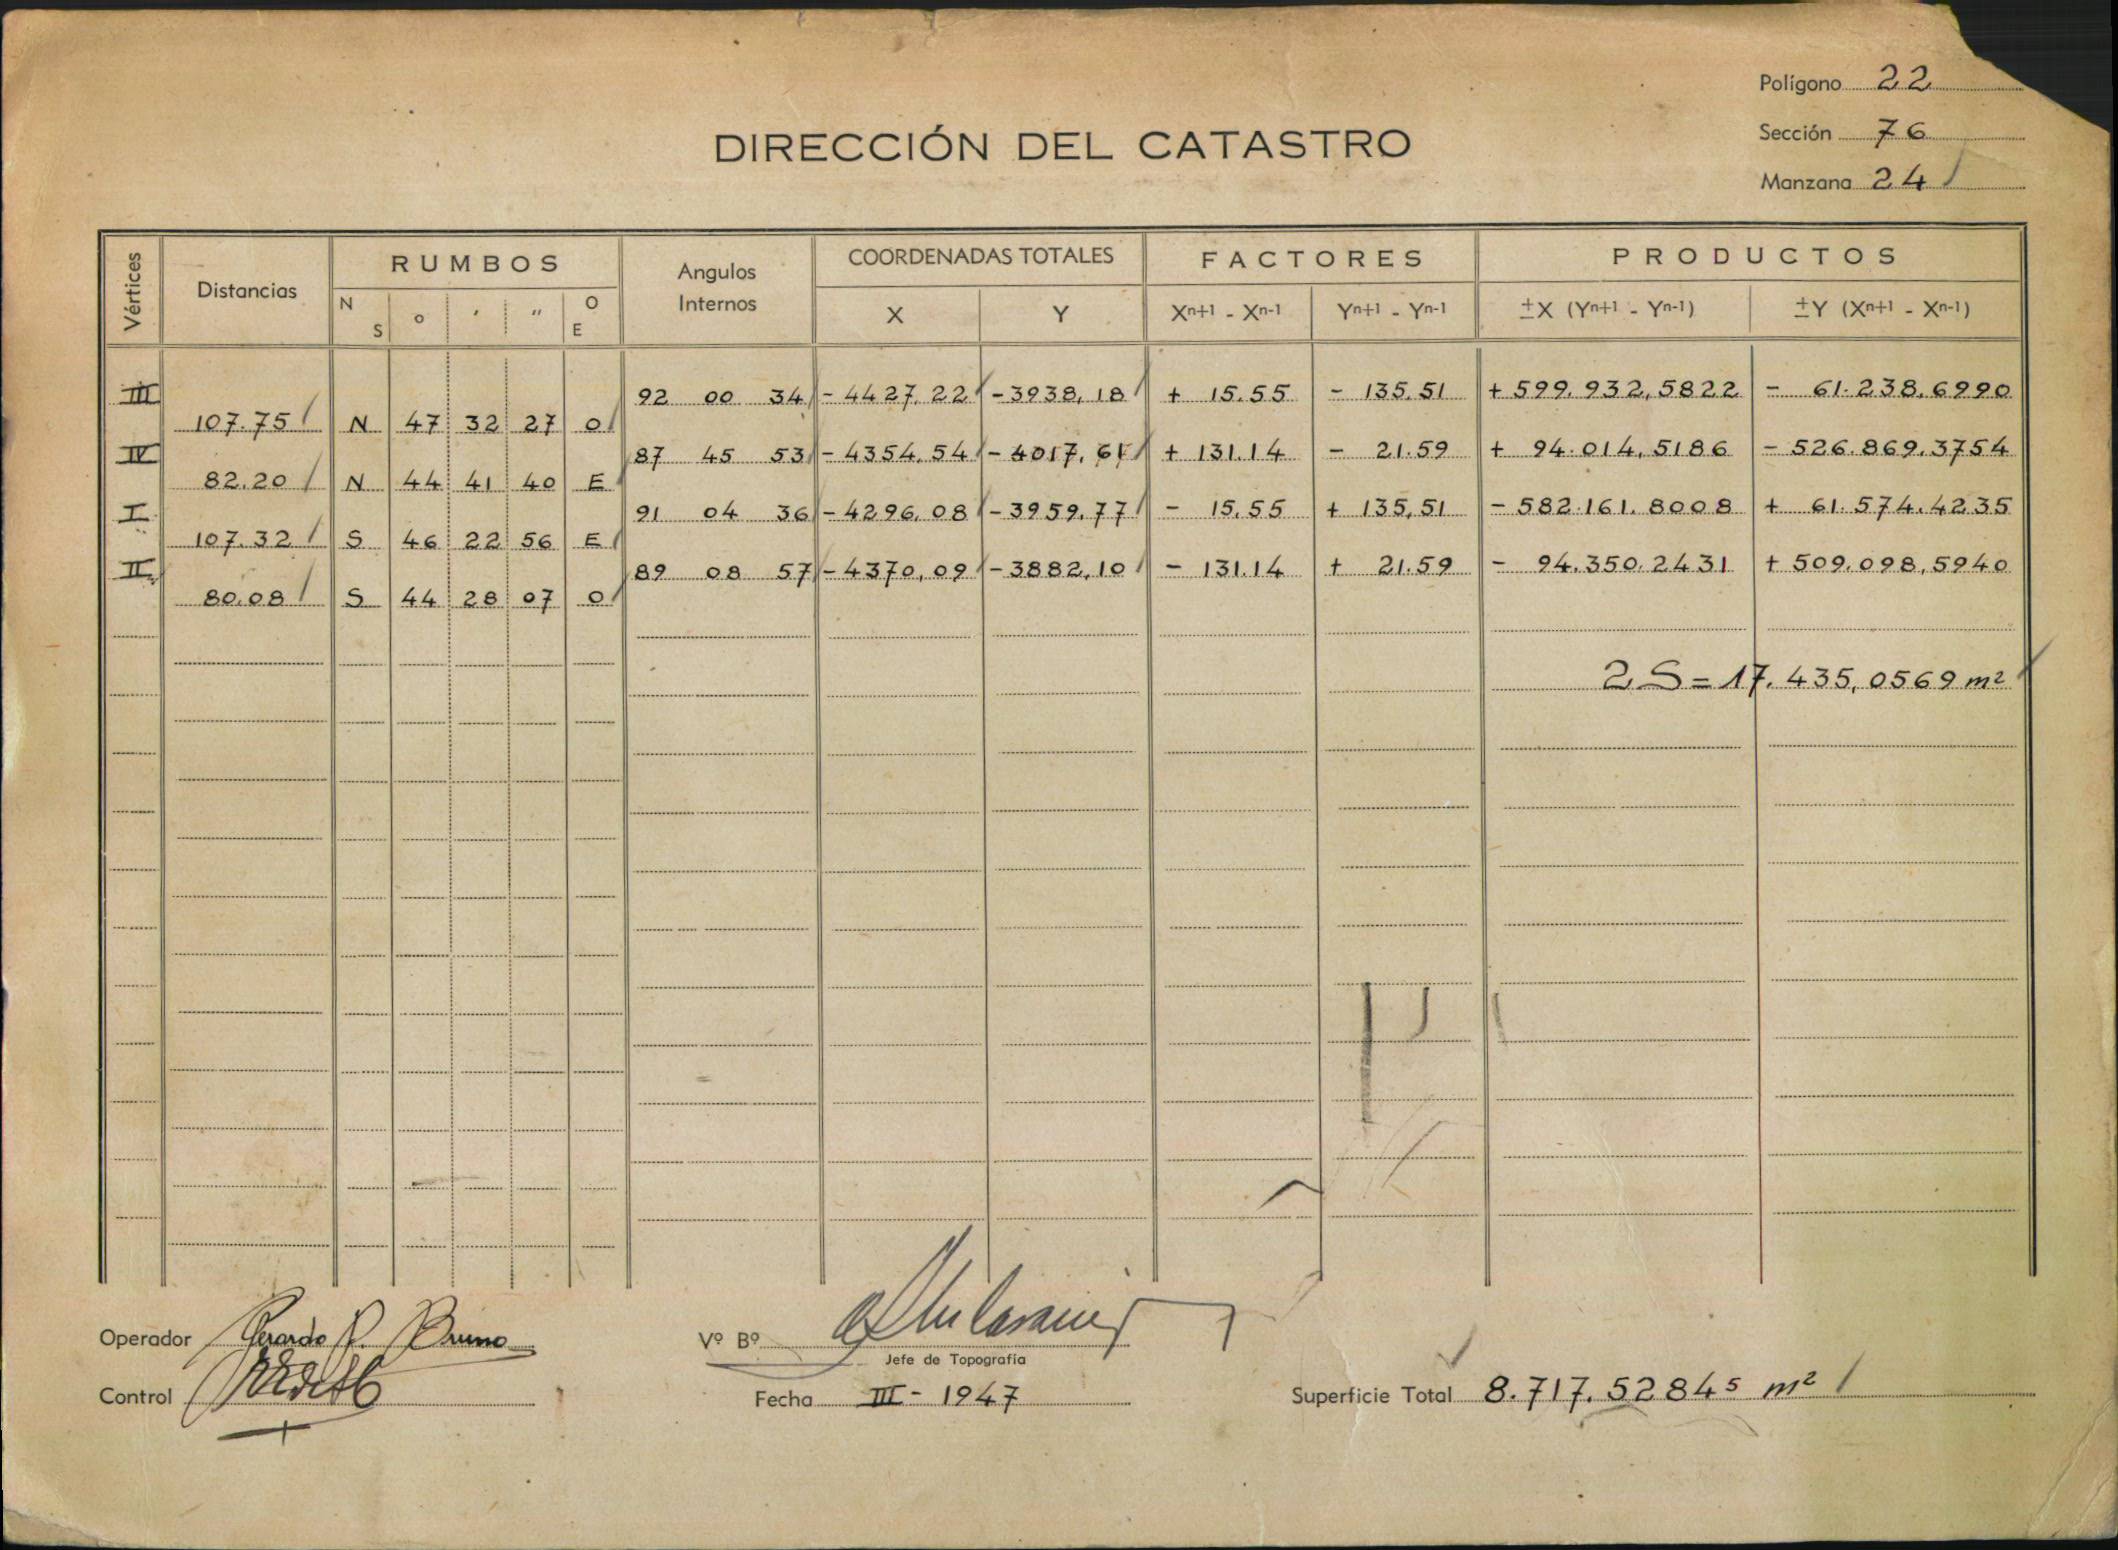 Polígono 22
Sección 76
Manzana 24
DIRECCIÓN DEL CATASTRO
Vértices Distancias RUMBOS Angulos Internos COORDENADAS TOTALES FACTORES PRODUCTOS
N S o ' " O E X Y Xn+1 - Xn-1 Yn+1 - Yn-1 ±X (Yn+1 - Yn-1) ±Y (Xn+1 - Xn-1)
III 92 00 34 - 4427,22 - 3938,18 + 15.55 - 135,51 + 599.932,5822 - 61.238,6990
107.75 N 47 32 27 O
IV 87 45 53 - 4354,54 - 4017,61 + 131.14 - 21.59 + 94.014,5186 - 526.869,3754
82.20 N 44 41 40 E
I 91 04 36 - 4296,08 - 3959,77 - 15.55 + 135,51 - 582.161.8008 + 61.574.4235
107.32 S 46 22 56 E
II 89 08 57 - 4370,09 - 3882,10 - 131.14 + 21.59 - 94.350.2431 + 509.098,5940
80.08 S 44 28 07 O
2S = 17.435,0569 m²
Operador Gerardo R. Bruno
Vº Bº
Jefe de Topografía
Control
Fecha III - 1947
Superficie Total 8.717.52845 m²